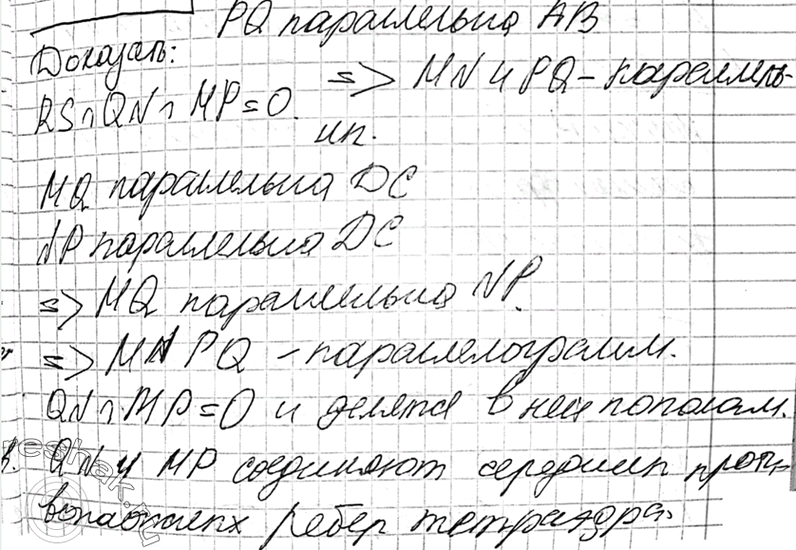 PQ параллельна AB
Доказать:
RS∩QN∩MP=O. => MN и PQ - параллель-
MQ параллельна DC
NP параллельна DC
=> MQ параллельна NP.
=> MNPQ - параллелограмм.
QN∩MP=O и делятся в ней пополам.
QN и MP соединяют середины проти-
ребер тетраэдра.